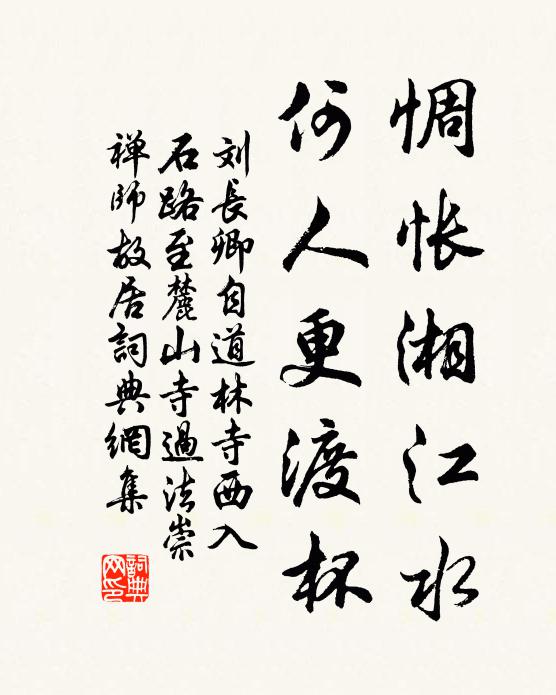 惆怅湘江水
何人更渡杯
刘長卿自道林寺西入
石路至麓山寺過法崇
禅師故居詞典網集
詞典
网印